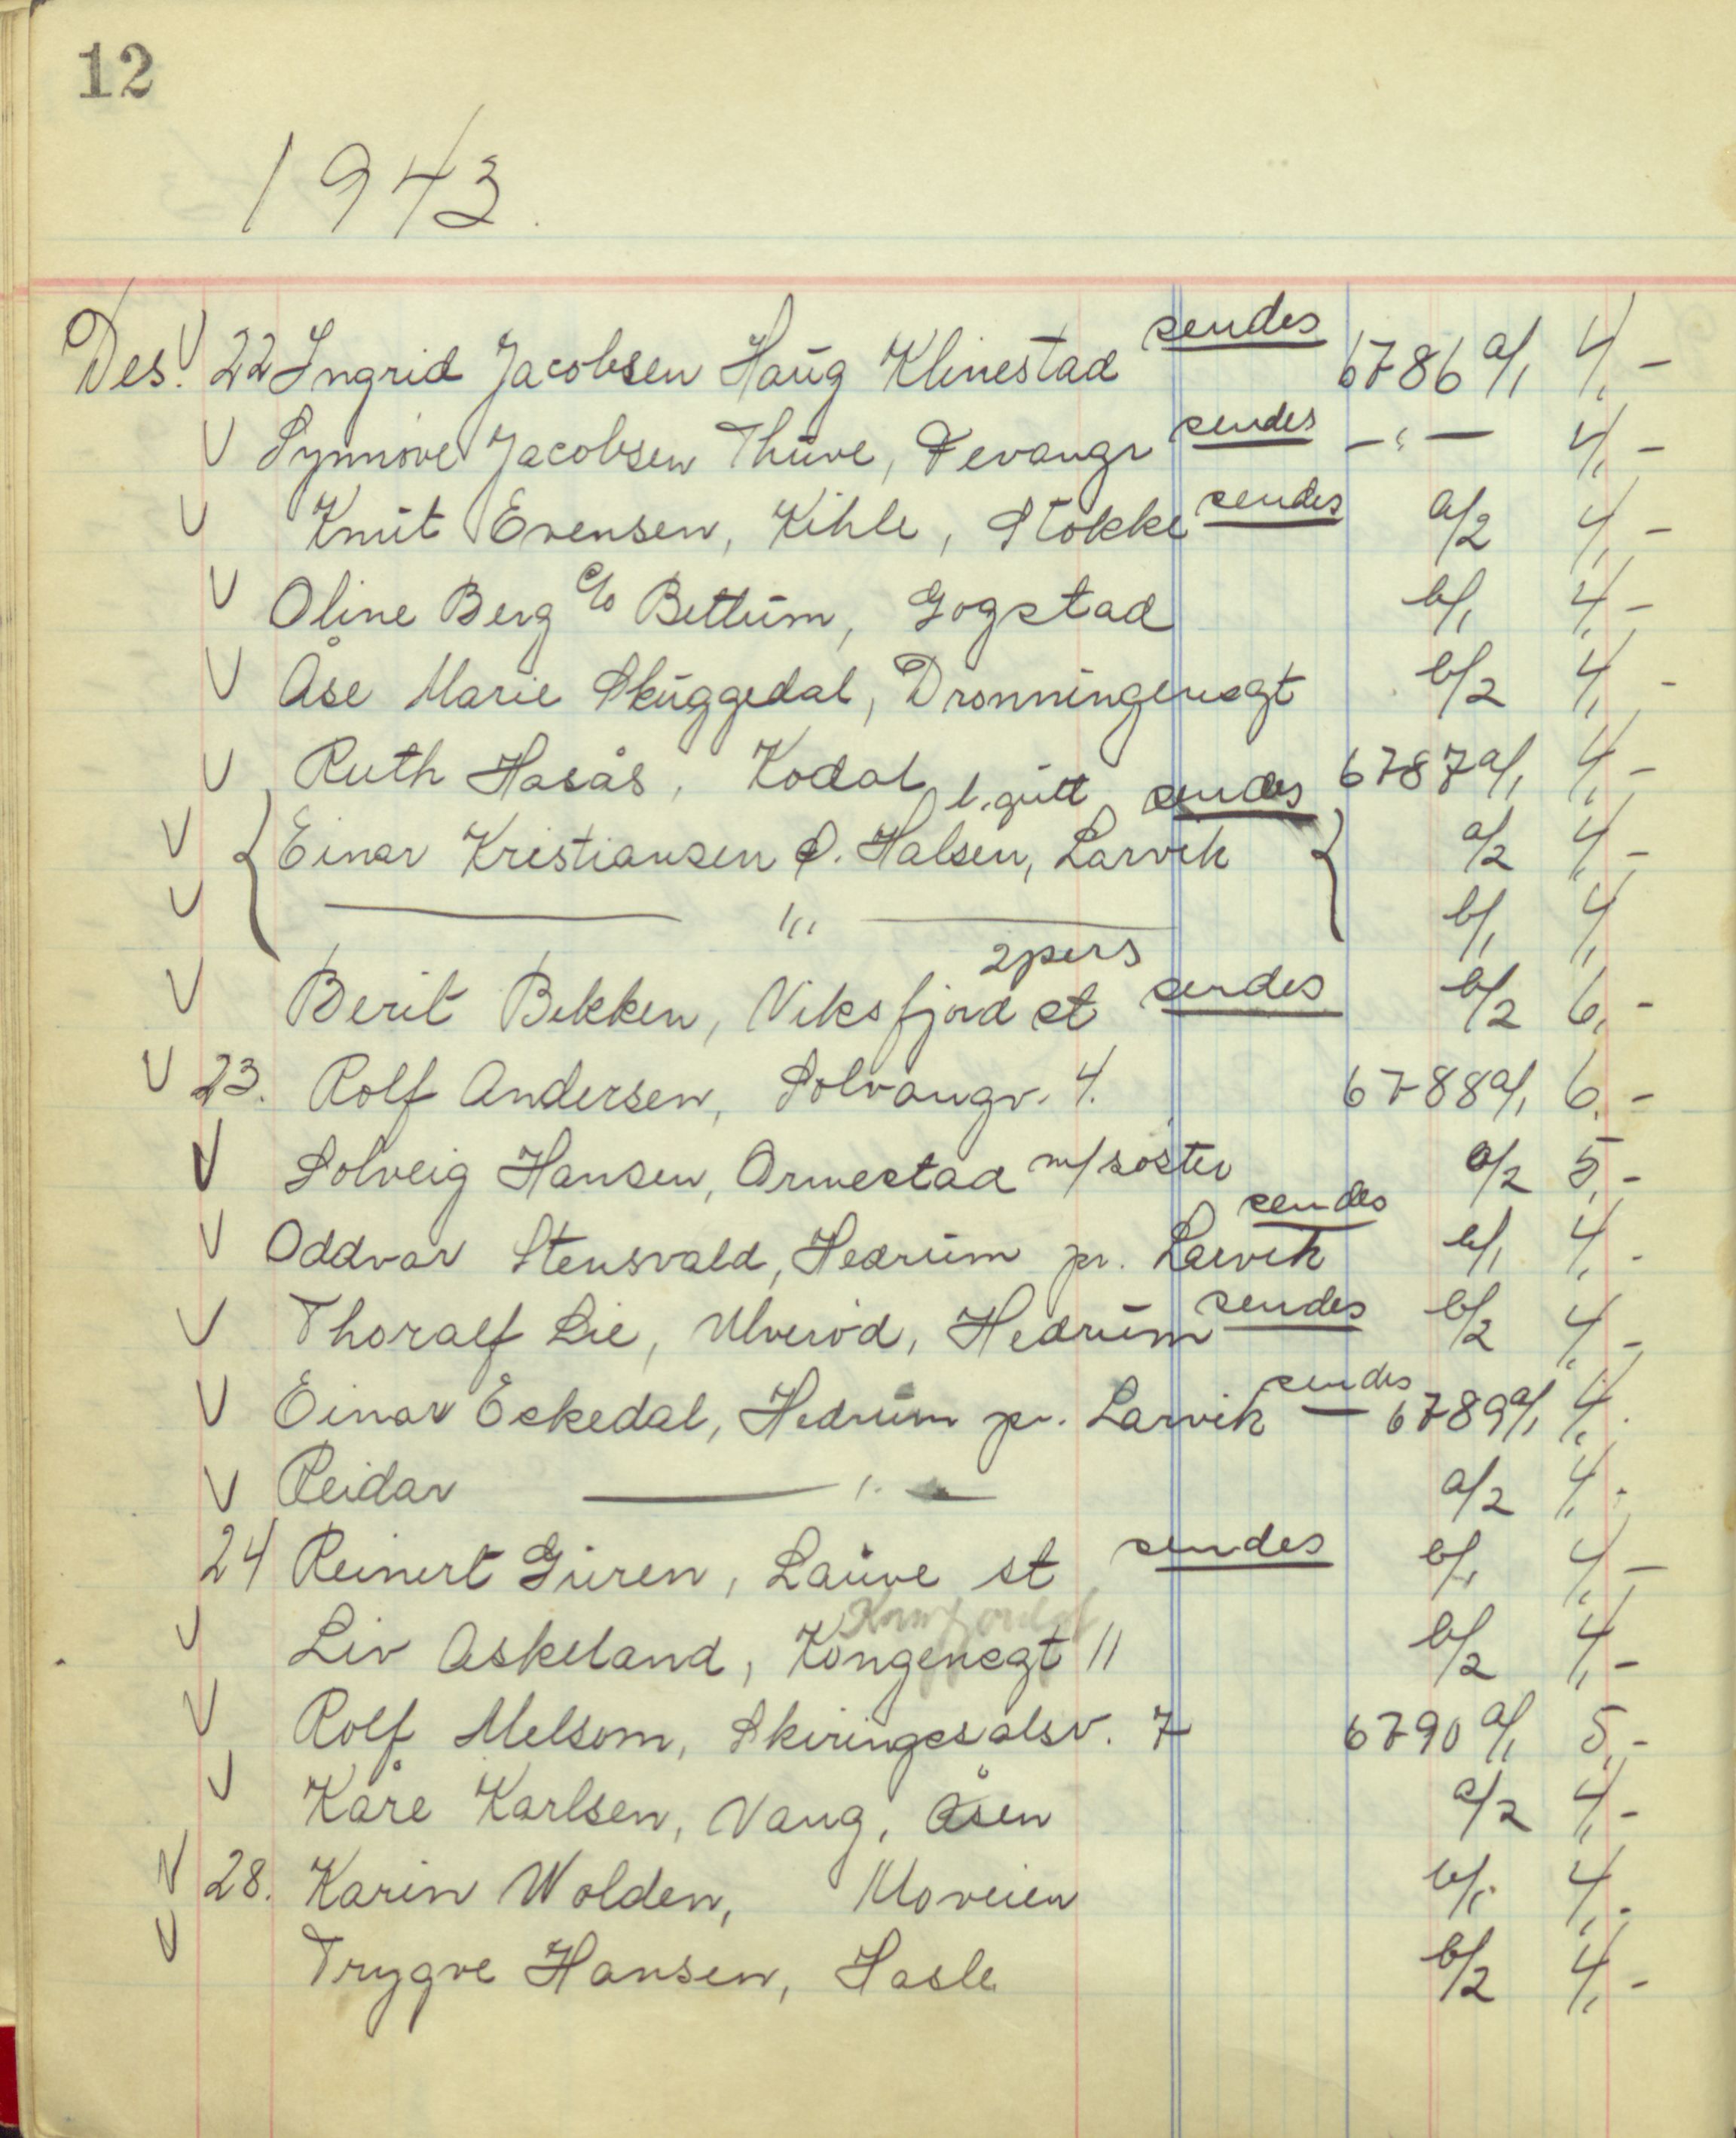 12
1943.
Des. V 22 Ingrid Jacobsen Haug Klinestad sendes 6786 a/1 4,-
V Synnøve Jacobsen Thuve, Fevangr sendes -"- 4,-
V Knut Evensen, Kihle, Stokke sendes a/2 4,-
V Oline Berg c/o Bettum, Gogstad b/1 4,-
V Åse Marie Skuggedal, Dronningensgt b/2 4,-
V Ruth Hasås, Kodal 6787 a/1 4,-
l. gutt sendes
V { Einar Kristiansen Ø. Halsen, Larvik } a/2 4,-
V —— " —— b/1 4,
2 pers
V Berit Bekken, Viksfjord st sendes b/2 6,-
V 23. Rolf Andersen, Solvangv. 4. 6788 a/1 6,-
V Solveig Hansen, Ormestad m/søster a/2 5,-
V Oddvar Stensvald, Hedrum pr. Larvik sendes b/1 4,-
V Thoralf Lie, Ulverød, Hedrum sendes b/2 4,-
V Einar Eskedal, Hedrum pr. Larvik sendes — 6789 a/1 4,
V Reidar —— " —— a/2 4,-
24 Reinert Guren, Lauve st sendes b/1 4,-
V Liv Askeland, Kongensgt 11 b/2 4,-
V Rolf Melsom, Skiringssalsv. 7 6790 a/1 5,-
V Kåre Karlsen, Vang, Åsen a/2 4,-
V 28. Karin Wolden, Moveien b/1 4,-
V Trygve Hansen, Hasle b/2 4,-